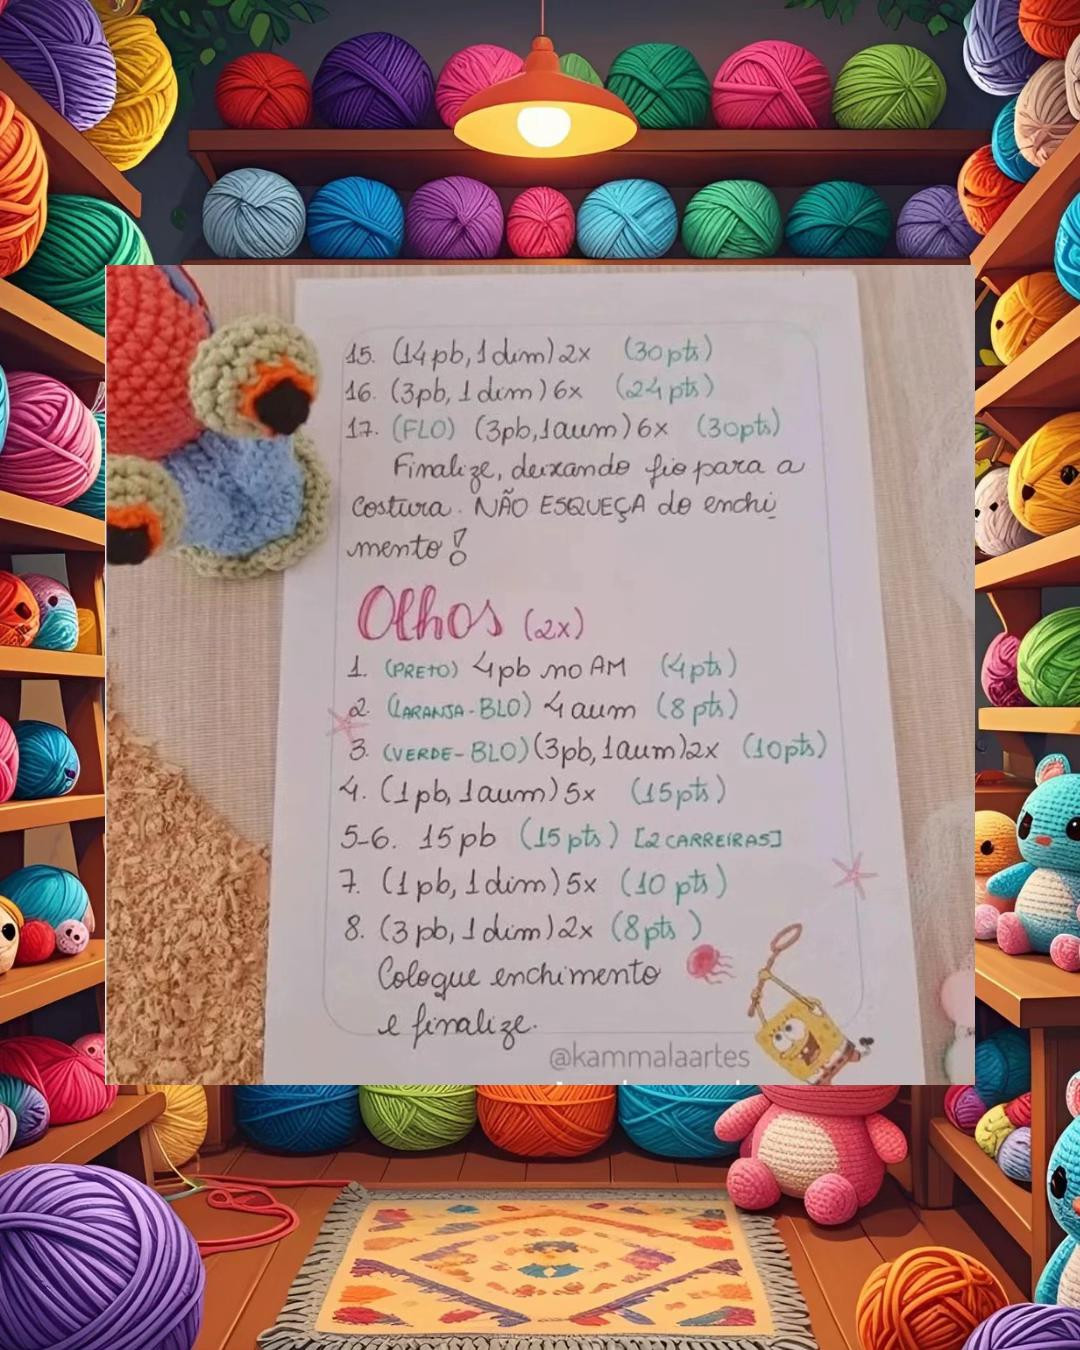 15. (14pb, 1dim)2x (30pts)
16. (3pb, 1dim)6x (24pts)
17. (FLO) (3pb,1aum)6x (30pts)
Finalize, deixando fio para a
Costura. NÃO ESQUEÇA do enchi
mento!
Olhos (2x)
1. (PRETO) 4pb no AM (4pts)
2. (LARANJA-BLO) 4aum (8pts)
3. (VERDE-BLO)(3pb,1aum)2x (10pts)
4. (1pb, 1aum)5x (15pts)
5-6. 15pb (15pts) [2 CARREIRAS]
7. (1pb, 1dim)5x (10 pts)
8. (3pb, 1dim)2x (8pts)
Coloque enchimento
e finalize.
@kammalaartes